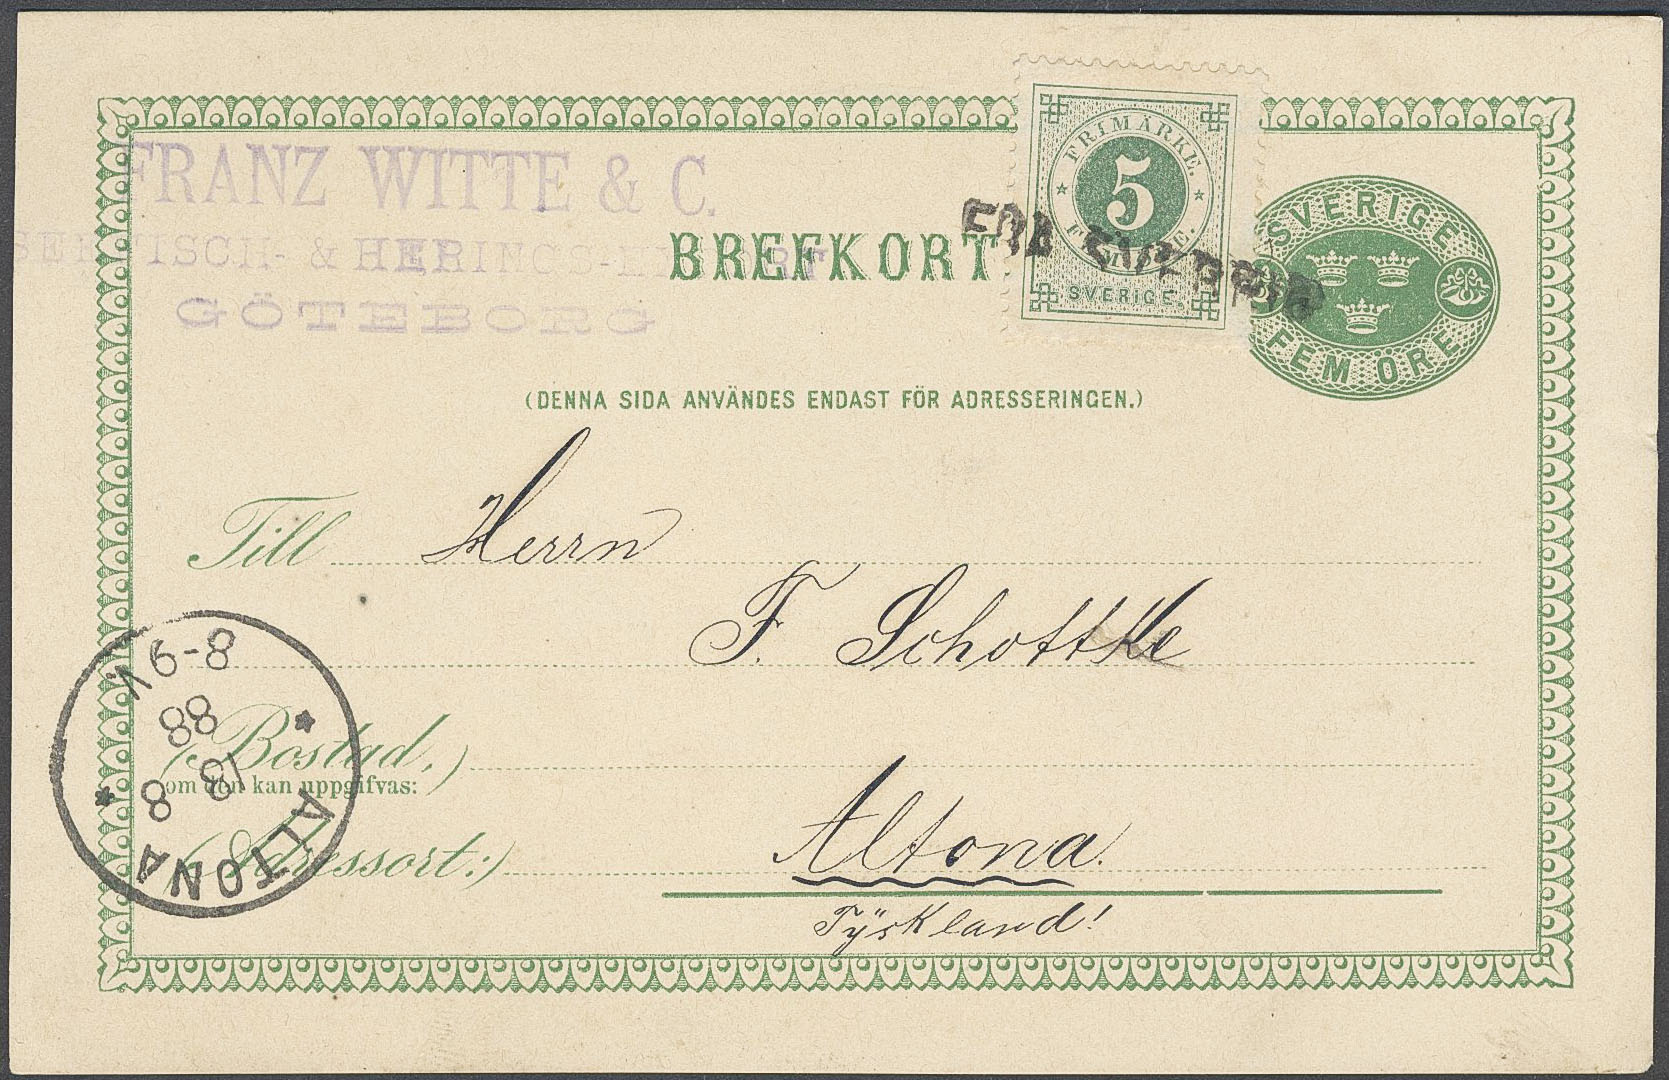 FRANZ WITTE & C.
& HERINGS-
GÖTEBORG
BREFKORT
FRIMÄRKE.
5
SVERIGE
FRA
SVERIGE
FEM ÖRE
(DENNA SIDA ANVÄNDES ENDAST FÖR ADRESSERINGEN.)
Till Herrn
F. Schottke
(Bostad,)
om den kan uppgifvas:
(Adressort:) Altona.
Tyskland!
ALTONA
13 8 88
8-9V.